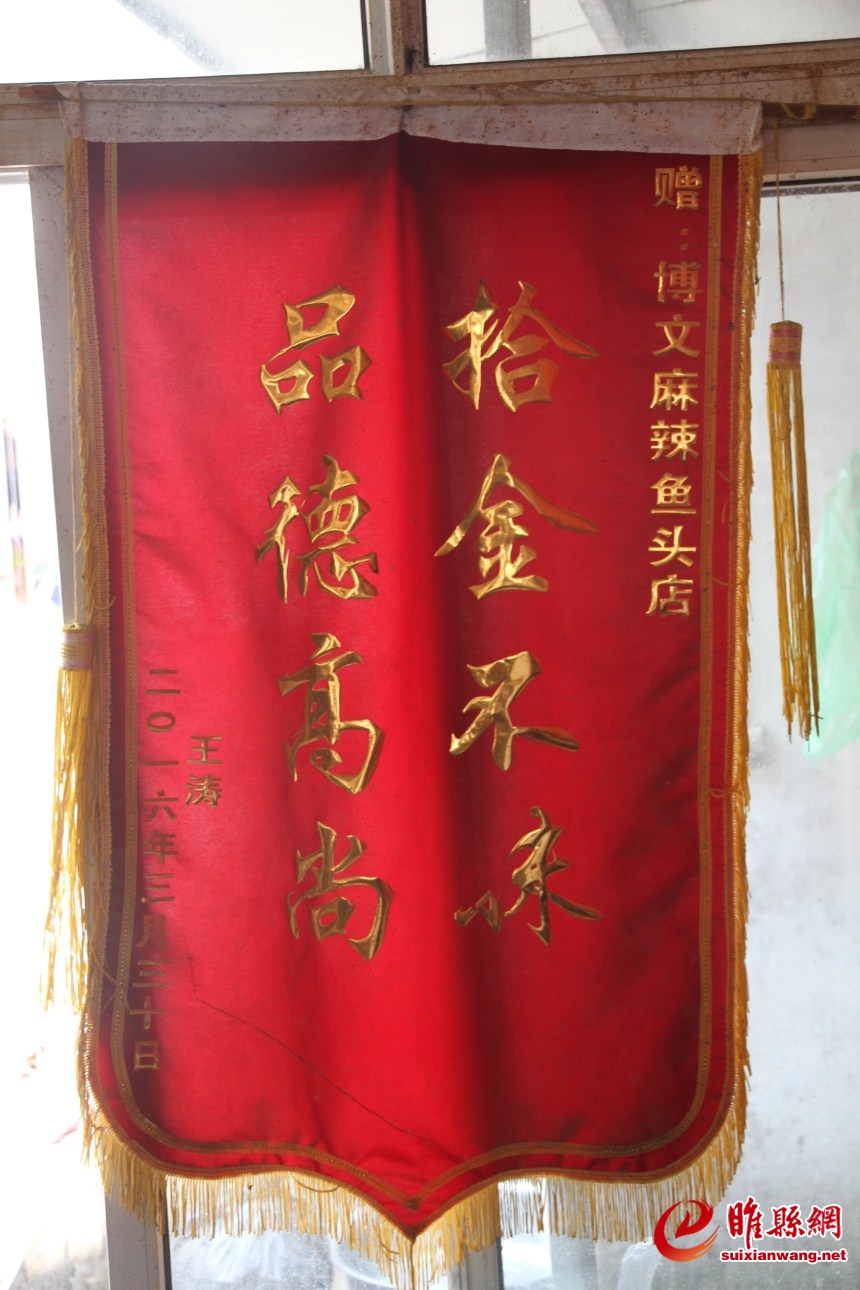 赠：博文麻辣鱼头店
拾金不昧
品德高尚
王涛
二〇一六年三月三十日
睢縣網
suixianwang.net